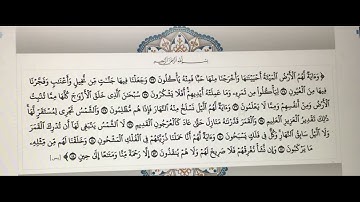 بِسْمِ ٱللَّهِ ٱلرَّحْمَٰنِ ٱلرَّحِيمِ
﴿ وَءَايَةٌ لَّهُمُ ٱلْأَرْضُ ٱلْمَيْتَةُ أَحْيَيْنَٰهَا وَأَخْرَجْنَا مِنْهَا حَبًّا فَمِنْهُ يَأْكُلُونَ ۝ وَجَعَلْنَا فِيهَا جَنَّٰتٍ مِّن نَّخِيلٍ وَأَعْنَٰبٍ وَفَجَّرْنَا
فِيهَا مِنَ ٱلْعُيُونِ ۝ لِيَأْكُلُوا۟ مِن ثَمَرِهِۦ وَمَا عَمِلَتْهُ أَيْدِيهِمْ أَفَلَا يَشْكُرُونَ ۝ سُبْحَٰنَ ٱلَّذِى خَلَقَ ٱلْأَزْوَٰجَ كُلَّهَا مِمَّا تُنۢبِتُ
ٱلْأَرْضُ وَمِنْ أَنفُسِهِمْ وَمِمَّا لَا يَعْلَمُونَ ۝ وَءَايَةٌ لَّهُمُ ٱلَّيْلُ نَسْلَخُ مِنْهُ ٱلنَّهَارَ فَإِذَا هُم مُّظْلِمُونَ ۝ وَٱلشَّمْسُ تَجْرِى لِمُسْتَقَرٍّ لَّهَا
ذَٰلِكَ تَقْدِيرُ ٱلْعَزِيزِ ٱلْعَلِيمِ ۝ وَٱلْقَمَرَ قَدَّرْنَٰهُ مَنَازِلَ حَتَّىٰ عَادَ كَٱلْعُرْجُونِ ٱلْقَدِيمِ ۝ لَا ٱلشَّمْسُ يَنۢبَغِى لَهَآ أَن تُدْرِكَ ٱلْقَمَرَ
وَلَا ٱلَّيْلُ سَابِقُ ٱلنَّهَارِ وَكُلٌّ فِى فَلَكٍ يَسْبَحُونَ ۝ وَءَايَةٌ لَّهُمْ أَنَّا حَمَلْنَا ذُرِّيَّتَهُمْ فِى ٱلْفُلْكِ ٱلْمَشْحُونِ ۝ وَخَلَقْنَا لَهُم مِّن مِّثْلِهِۦ
مَا يَرْكَبُونَ ۝ وَإِن نَّشَأْ نُغْرِقْهُمْ فَلَا صَرِيخَ لَهُمْ وَلَا هُمْ يُنقَذُونَ ۝ إِلَّا رَحْمَةً مِّنَّا وَمَتَٰعًا إِلَىٰ حِينٍ ۝ ﴾ [يس]